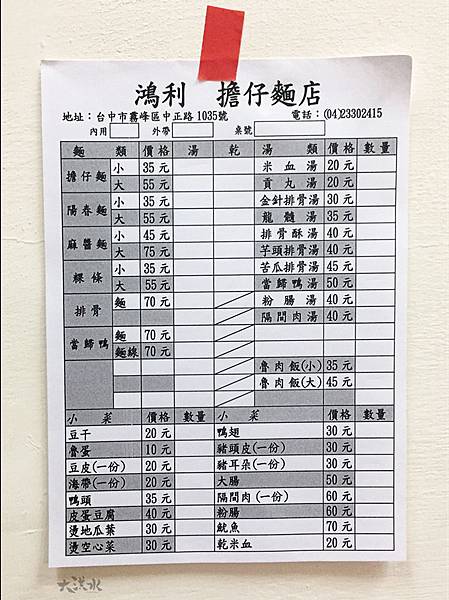 鴻利 擔仔麵店
地址：台中市霧峰區中正路1035號 電話：(04)23302415
內用 外帶 桌號
麵類 價格 湯 乾 湯類 價格 數量
擔仔麵 小 35元 米血湯 20元
大 55元 貢丸湯 20元
陽春麵 小 35元 金針排骨湯 30元
大 55元 龍髓湯 35元
麻醬麵 小 45元 排骨酥湯 40元
大 75元 芋頭排骨湯 40元
粿條 小 35元 苦瓜排骨湯 45元
大 55元 當歸鴨湯 50元
排骨 麵 70元 粉腸湯 40元
隔間肉湯 40元
當歸鴨 麵 70元
麵線 70元
魯肉飯(小) 35元
魯肉飯(大) 45元
小菜 價格 數量 小菜 價格 數量
豆干 20元 鴨翅 30元
魯蛋 10元 豬頭皮(一份) 30元
豆皮(一份) 20元 豬耳朵(一份) 30元
海帶(一份) 20元 大腸 50元
鴨頭 35元 隔間肉(一份) 60元
皮蛋豆腐 40元 粉腸 60元
燙地瓜葉 30元 魷魚 70元
燙空心菜 30元 乾米血 20元
大洪水